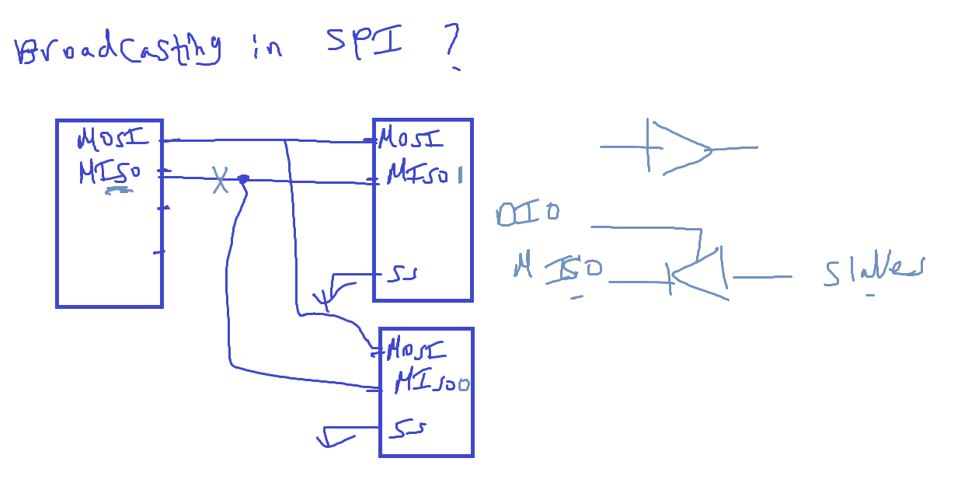 Broadcasting in SPI ?
MOSI
MISO
MOSI
MISO 1
SS
MOSI
MISO 0
SS
DIO
MISO
Slaves